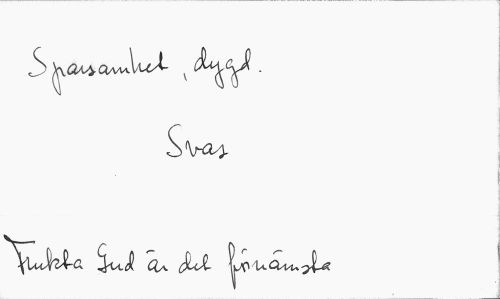 Sparsamhet, dygd.
Svar
Frukta Gud är det förnämsta